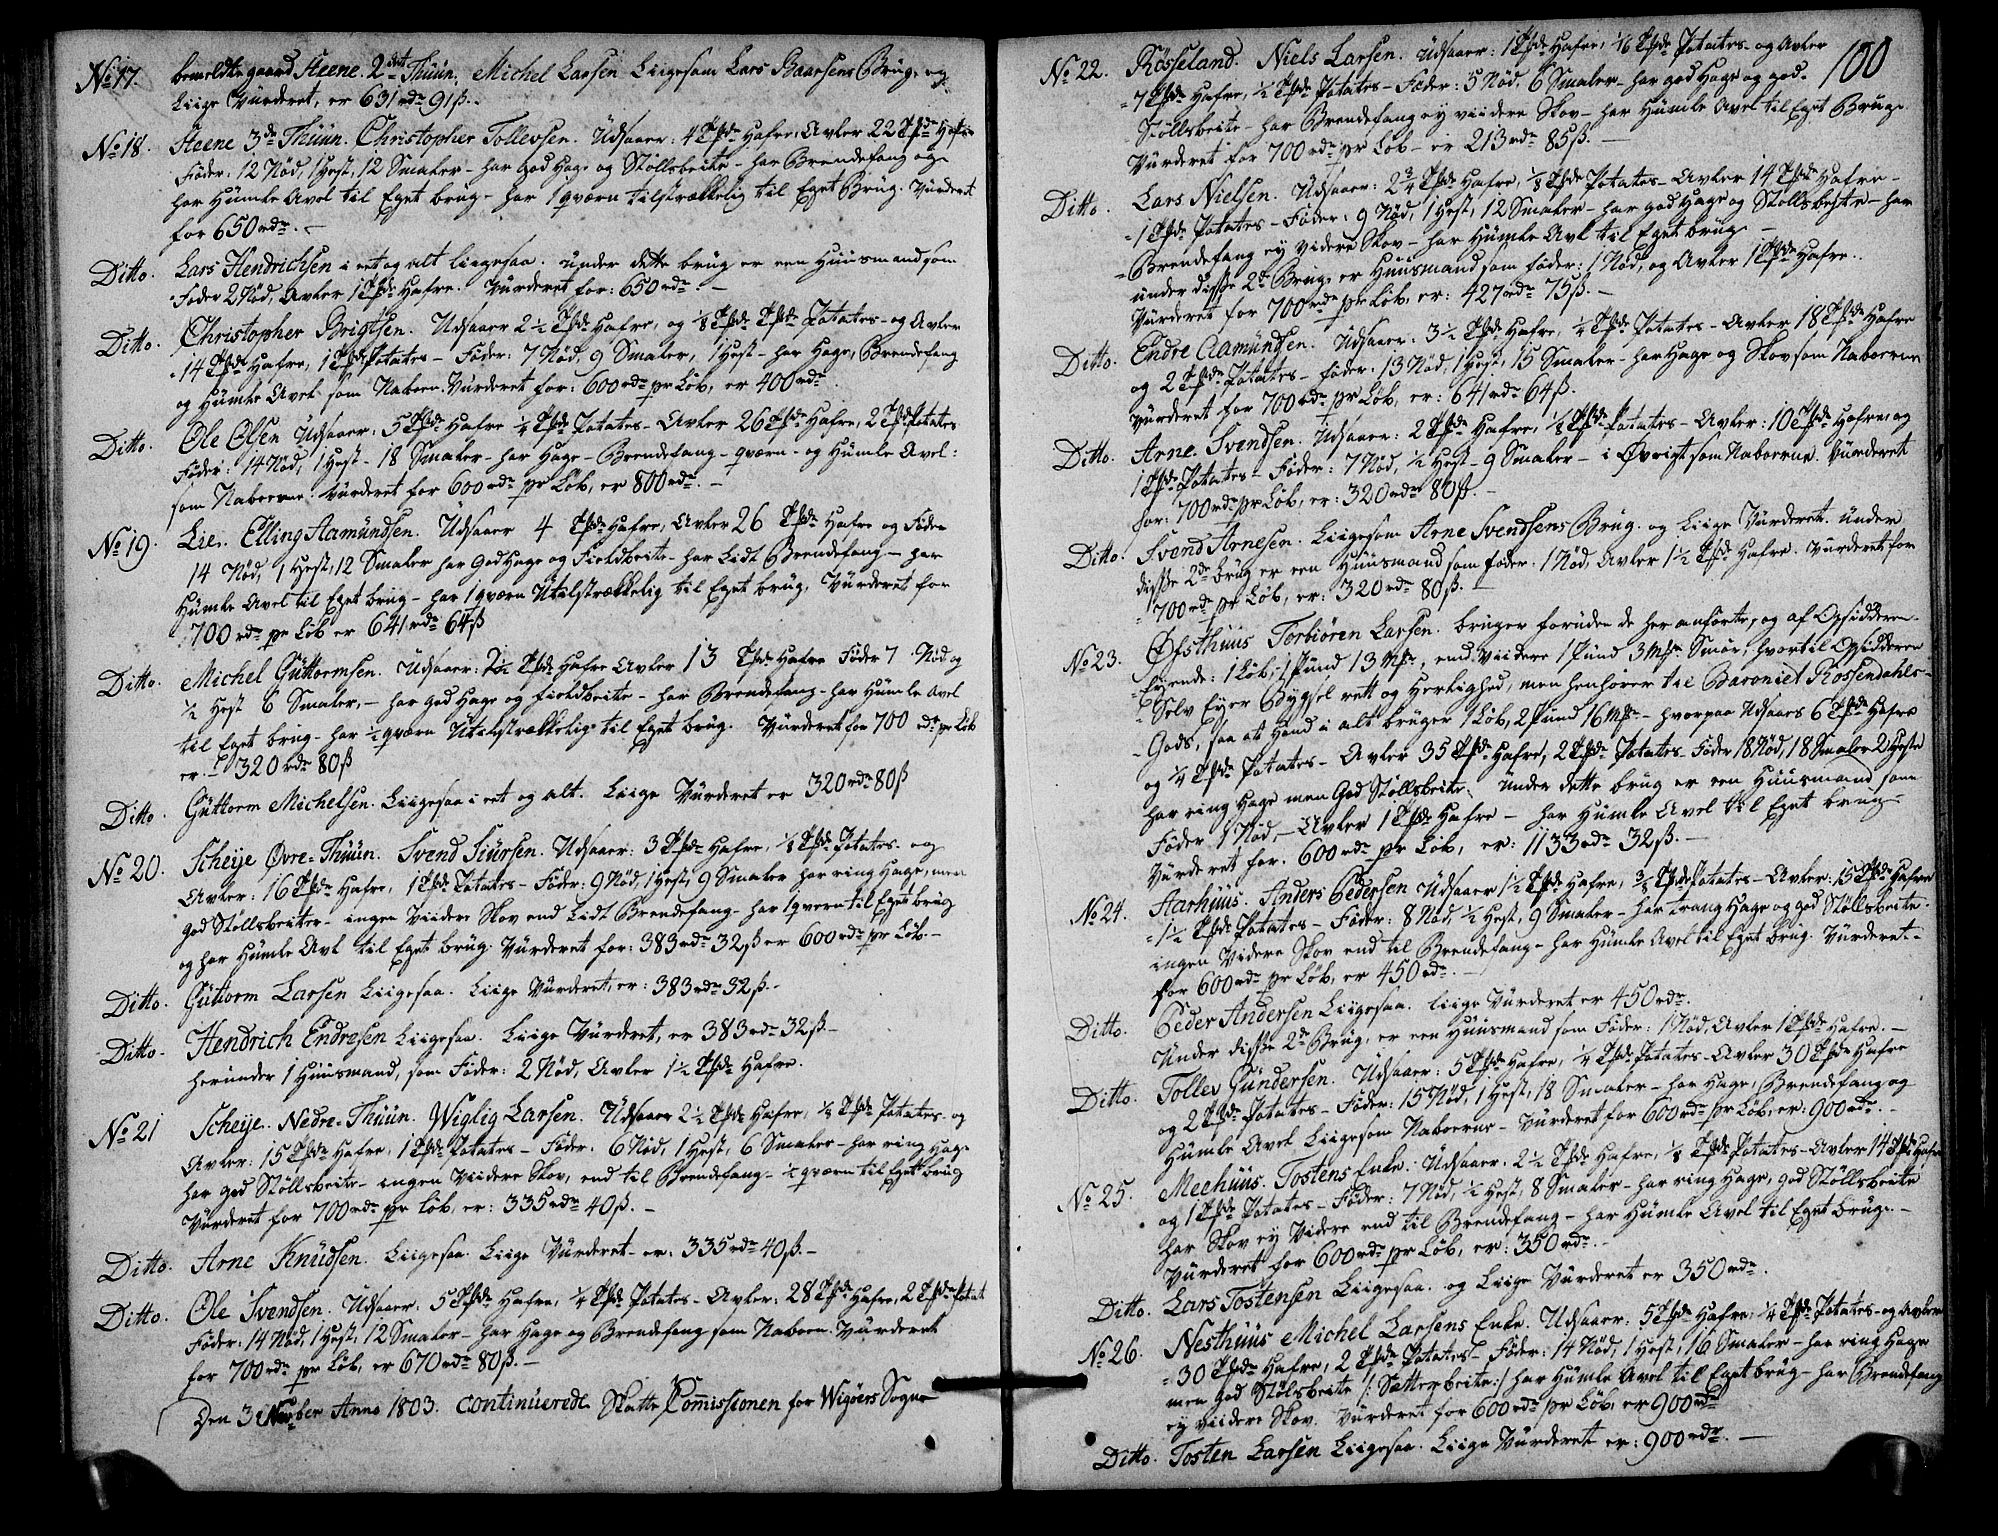 No 17. bemeldte gaard Steene. 2det Thüün. Michel Larsen Liigesom Lars Baarsens Brüg, og
Liige Vürderet, er 631 rdr 91ß.
No 18. Steene 3de Thüün. Christopher Tollevsen. Udsaaer: 4 Tønde Hafre, Avler 22 Tønde Hafre
Føder: 12 Nød, 1 Hest, 12 Smaler – har god Hage og Støllsbeite – har Brendefang og
har Humle Avel til Eget brug – har 1 qværn tilstrækkelig til Eget Brüg. Vürderet
for 650 rdr. –
Ditto. Lars Hendrichsen i eet og alt liigesaa. under dette brug er een Huusmand som
Føder 2 Nød, Avler 1 Tønde Hafre. Vürderet for: 650 rdr. –
Ditto. Christopher Brigtsen. Udsaaer 2½ Tønde Hafre, og ⅛ Tønde Potates – og Avler
14 Tønde Hafre, 1 Tønde Potates – Føder: 7 Nød, 9 Smaler, 1 Hest – har Hage, Brendefang
og Humle Avel som Naboen. Vürderet for: 600 rdr pr Løb, er 400 rdr.
Ditto. Ole Olsen Udsaaer: 5 Tønde Hafre ¼ Tønde Potates – Avler 26 Tønde Hafre, 2 Tønde Potates
Føder: 14 Nød, 1 Hest – 18 Smaler – har Hage – Brendefang – qværn – og Humle Avel:
som Naboerne. Vürderet for 600 rdr pr Løb, er 800 rdr. –
No 19. Lie. Elling Aamündsen. Udsaaer 4 Tønde Hafre, Avler 26 Tønde Hafre og Føder
14 Nød, 1 Hest, 12 Smaler har God Hage og Fieldbeite – har Lidt Brendefang – har
Humle Avel til Eget brug – har 1 qværn Utilstrækkelig til Eget brüg, Vürderet for
700 rdr pr Løb er 641 rdr 64ß
Ditto. Michel Güttormsen. Udsaaer: 2½ Tønde Hafre Avler 13 Tønde Hafre Føder 7 Nød og
½ Hest 6 Smaler, – har god Hage og fieldbeite – har Brendefang – har Humle Avel
til Eget brug – har ½ qværn Utilstrækkelig til Eget brug. Vürderet for 700 rdr pr Løb
er 320 rdr 80ß
Ditto. Güttorm Michelsen. Liigesaa i eet og alt. Liige Vürderet er 320 rdr 80ß
No 20. Scheije Øvre-Thüün. Svend Siürsen. Udsaaer: 3 Tønde Hafre, ⅛ Tønde Potates – og
Avler: 16 Tønde Hafre, 1 Tønde Potates – Føder: 9 Nød, 1 Hest, 9 Smaler har ring Hage, men
god Støllsbeite – ingen Viidere Skov end Lidt Brendefang – har 1 qvern til Eget brüg
og har Humle Avl til Eget brüg. Vürderet for: 383 rdr 32ß er 600 rdr pr Løb. –
Ditto. Güttorm Larsen Liigesaa. Liige Vürderet, er: 383 rdr 32ß. –
Ditto. Hendrich Endresen Liigesaa. Liige Vürderet, er 383 rdr 32ß –
herunder 1 Huusmand, som Føder: 2 Nød, Avler 1½ Tønde Hafre.
No 21 Scheije. Nedre-Thüün. Wiglig Larsen. Udsaaer 2½ Tønde Hafre, ⅛ Tønde Potates – og
Avler: 15 Tønde Hafre, 1 Tønde Potates – Føder: 6 Nød, 1 Hest, 6 Smaler – har ring Hage
har god Støllsbeite – ingen Viidere Skov, end til Brendefang – ½ qværn til Eget brüg
Vürderet for 700 rdr pr Løb, er: 335 rdr 40ß. –
Ditto. Arne Knüdsen. Liigesaa. Liige Vürderet – er: 335 rdr 40ß. –
Ditto. Ole Svendsen. Udsaaer: 5 Tønde Hafre, ¼ Tønde Potates – Avler: 28 Tønde Hafre, 2 Tønde Potat
Føder: 14 Nød, 1 Hest, 12 Smaler – har Hage og Brendefang som Naboen. Vürderet
for 700 rdr pr Løb, er 670 rdr 80ß. –
Den 3 Anno 1803. continuerede Skatte Commissionen for Wigöers Sogne
100
No 22. Rösseland. Niels Larsen. Udsaaer: 1 Tønde Hafre, 1/16 Tønde Potates – og Avler
7 Tønde Hafre, ½ Tønde Potates – Føder: 5 Nød, 6 Smaler – har god Hage og god
Støllsbeite – har Brendefang ey viidere Skov – har Humle Avel til Eget Brug.
Vürderet for 700 rdr pr Løb – er 213 rdr 85ß. –
Ditto. Lars Nielsen. Udsaaer: 2¾ Tønde Hafre, ⅛ Tønde Potates – Avler 14 Tønde Hafre –
1 Tønde Potates – Føder: 9 Nød, 1 Hest, 12 Smaler – har god Hage og Støllsbeite – har
Brendefang ey Videre Skov – har Humle Avl til Eget brug –
under disse 2de Brug er Huusmand som føder: 1 Nød, og Avler 1 Tønde Hafre.
Vürderet for 700 rdr pr Løb, er: 427 rdr 75ß. –
Ditto. Endre Aamündsen. Udsaaer: 3½ Tønde Hafre, ¼ Tønde Potates – Avler 18 Tønde Hafre
og 2 Tønde Potates – føder: 13 Nød, 1 Hest, 15 Smaler – har Hage og Skov som Naboerne
Vürderet for 700 rdr pr Løb, er: 641 rdr 64ß.
Ditto. Arne Svendsen. Udsaaer: 2 Tønde Hafre, ⅛ Tønde Potates – Avler: 10 Tønde Hafre, og
1 Tønde Potates – Føder: 7 Nød, ½ Hest – 9 Smaler – i Øvrigt som Naboerne. Vürderet
for: 700 rdr pr Løb, er: 320 rdr 80ß. –
Ditto. Svend Arnesen. Liigesom Arne Svendsens Brüg. og Liige Vürderet. under
disse 2de brüg er een Huusmand som føder: 1 Nød, Avler 1½ Tønde Hafre. Vürderet for
700 rdr pr Løb, er: 320 rdr 80ß. –
No 23. Øfsthüüs Torbiören Larsen. bruger foruden de her anførte, og af Opsidderen
Eyende: 1 Løb, 1 Pund 13 Mrk, end Viidere 1 Pünd 3 Mrk Smör, hvortil Opsidderen
Selv Eyer Bygsel rett og Herlighed, men henhører til Baroniet Rossendahls
Gods, saa at Hand i alt brüger 1 Løb, 2 Pund 16 Mrk – hvorpaa Udsaaes 6 Tønde Hafre
og ¼ Tønde Potates – Avler 35 Tønde Hafre, 2 Tønde Potates – Føder 18 Nød, 18 Smaler 2 Heste
har ring Hage men God Støllsbeite. Under dette brug er een Huusmand som
Føder 1 Nød, – Avler 1 Tønde Hafre – har Humle Avel til Eget brug.
Vürderet for. 600 rdr pr Løb, er: 1133 rdr 32ß. –
No 24. Aarhüüs. Anders Pedersen Udsaaer 1½ Tønde Hafre, ⅜ Tønde Potates – Avler: 15 Tønde Hafre
1½ Tønde Potates – Føder: 8 Nød, ½ Hest, 9 Smaler – har trang Hage og god Støllsbeite.
ingen Videre Skov end til Brendefang – har Humle Avel til Eget brüg. Vürderet –
for 600 rdr pr Løb, er 450 rdr. –
Ditto. Peder Andersen Liigesaa. liige Vürderet er 450 rdr.
Under disse 2de Brüg, er een Huusmand som Føder: 1 Nød, Avler 1 Tønde Hafre. –
Ditto. Tollev Gündersen. Udsaaer: 5 Tønde Hafre, ¼ Tønde Potates – Avler 30 Tønde Hafre
og 2 Tønde Potates – Føder: 15 Nød, 1 Hest, 18 Smaler – har Hage, Brendefang og
Humle Avel Liigesom Naboerne – Vürderet for 600 rdr pr Løb, er: 900 rdr. –
No 25. Meehüüs. Tostens Enke. Udsaaer: 2½ Tønde Hafre, ⅛ Tønde Potates – Avler 14 Tønde Hafre
og 1 Tønde Potates – Føder: 7 Nød, ½ Hest, 8 Smaler – har ring Hage, god Støllsbeite
har Skov ey Videre end til Brendefang – har Humle Avel til Eget brug. –
Vürderet for 600 rdr pr Løb, er: 350 rdr. –
Ditto. Lars Tostensen Liigesaa. og Liige Vürderet er 350 rdr.
No 26. Nesthüüs Michel Larsens Enke. Udsaaer: 5 Tønde Hafre, ¼ Tønde Potates – og Avler
30 Tønde Hafre, 2 Tønde Potates – Føder: 14 Nød, 1 Hest, 16 Smaler – har ring Hage
men god Stølsbeite /: Sætterbeite :/ har Humle Avel til Eget brüg – har Brendefang
ey viidere Skov. Vürderet for 600 rdr pr Løb, er 900 rdr
Ditto. Tosten Larsen Liigesaa. Liige Vürderet er: 900 rdr. –